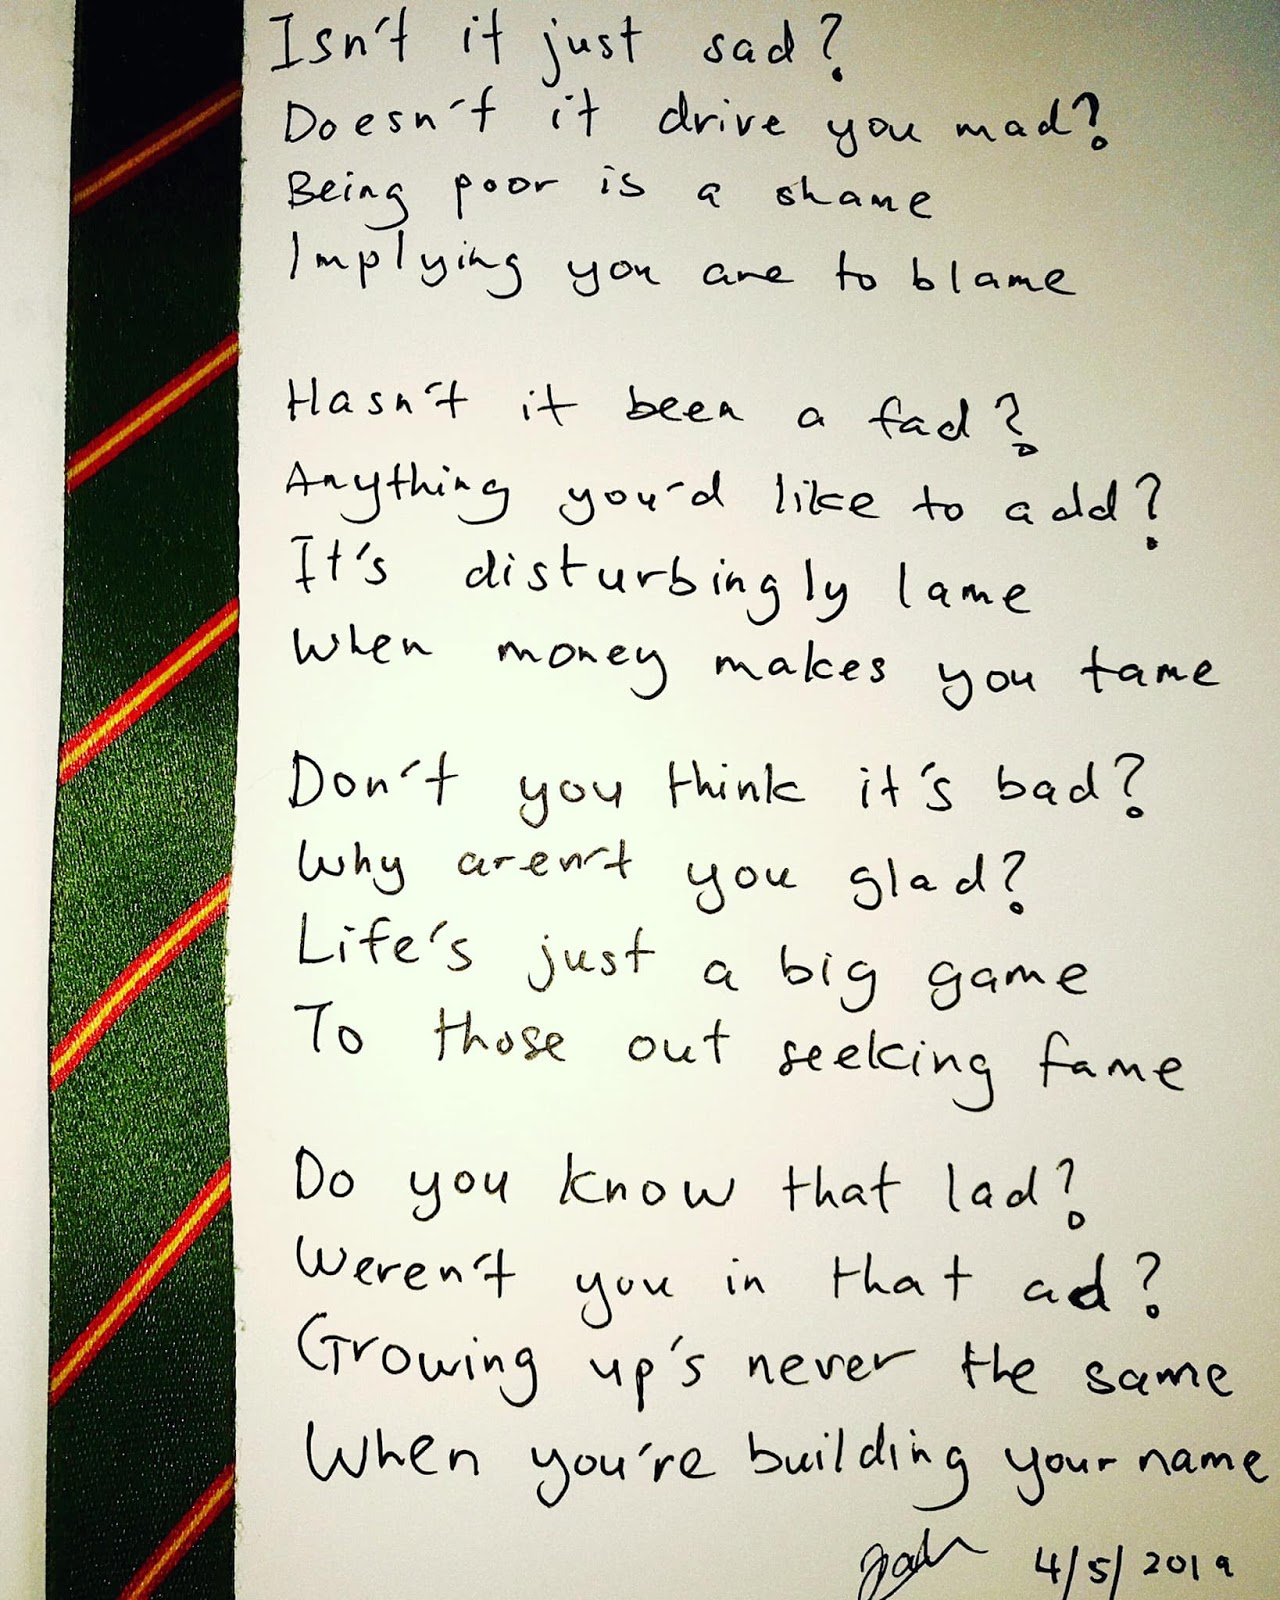 Isn't it just sad?
Doesn't it drive you mad?
Being poor is a shame
Implying you are to blame
Hasn't it been a fad?
Anything you'd like to add?
It's disturbingly lame
When money makes you tame
Don't you think it's bad?
Why aren't you glad?
Life's just a big game
To those out seeking fame
Do you know that lad?
Weren't you in that ad?
Growing up's never the same
When you're building your name
4/5/2019